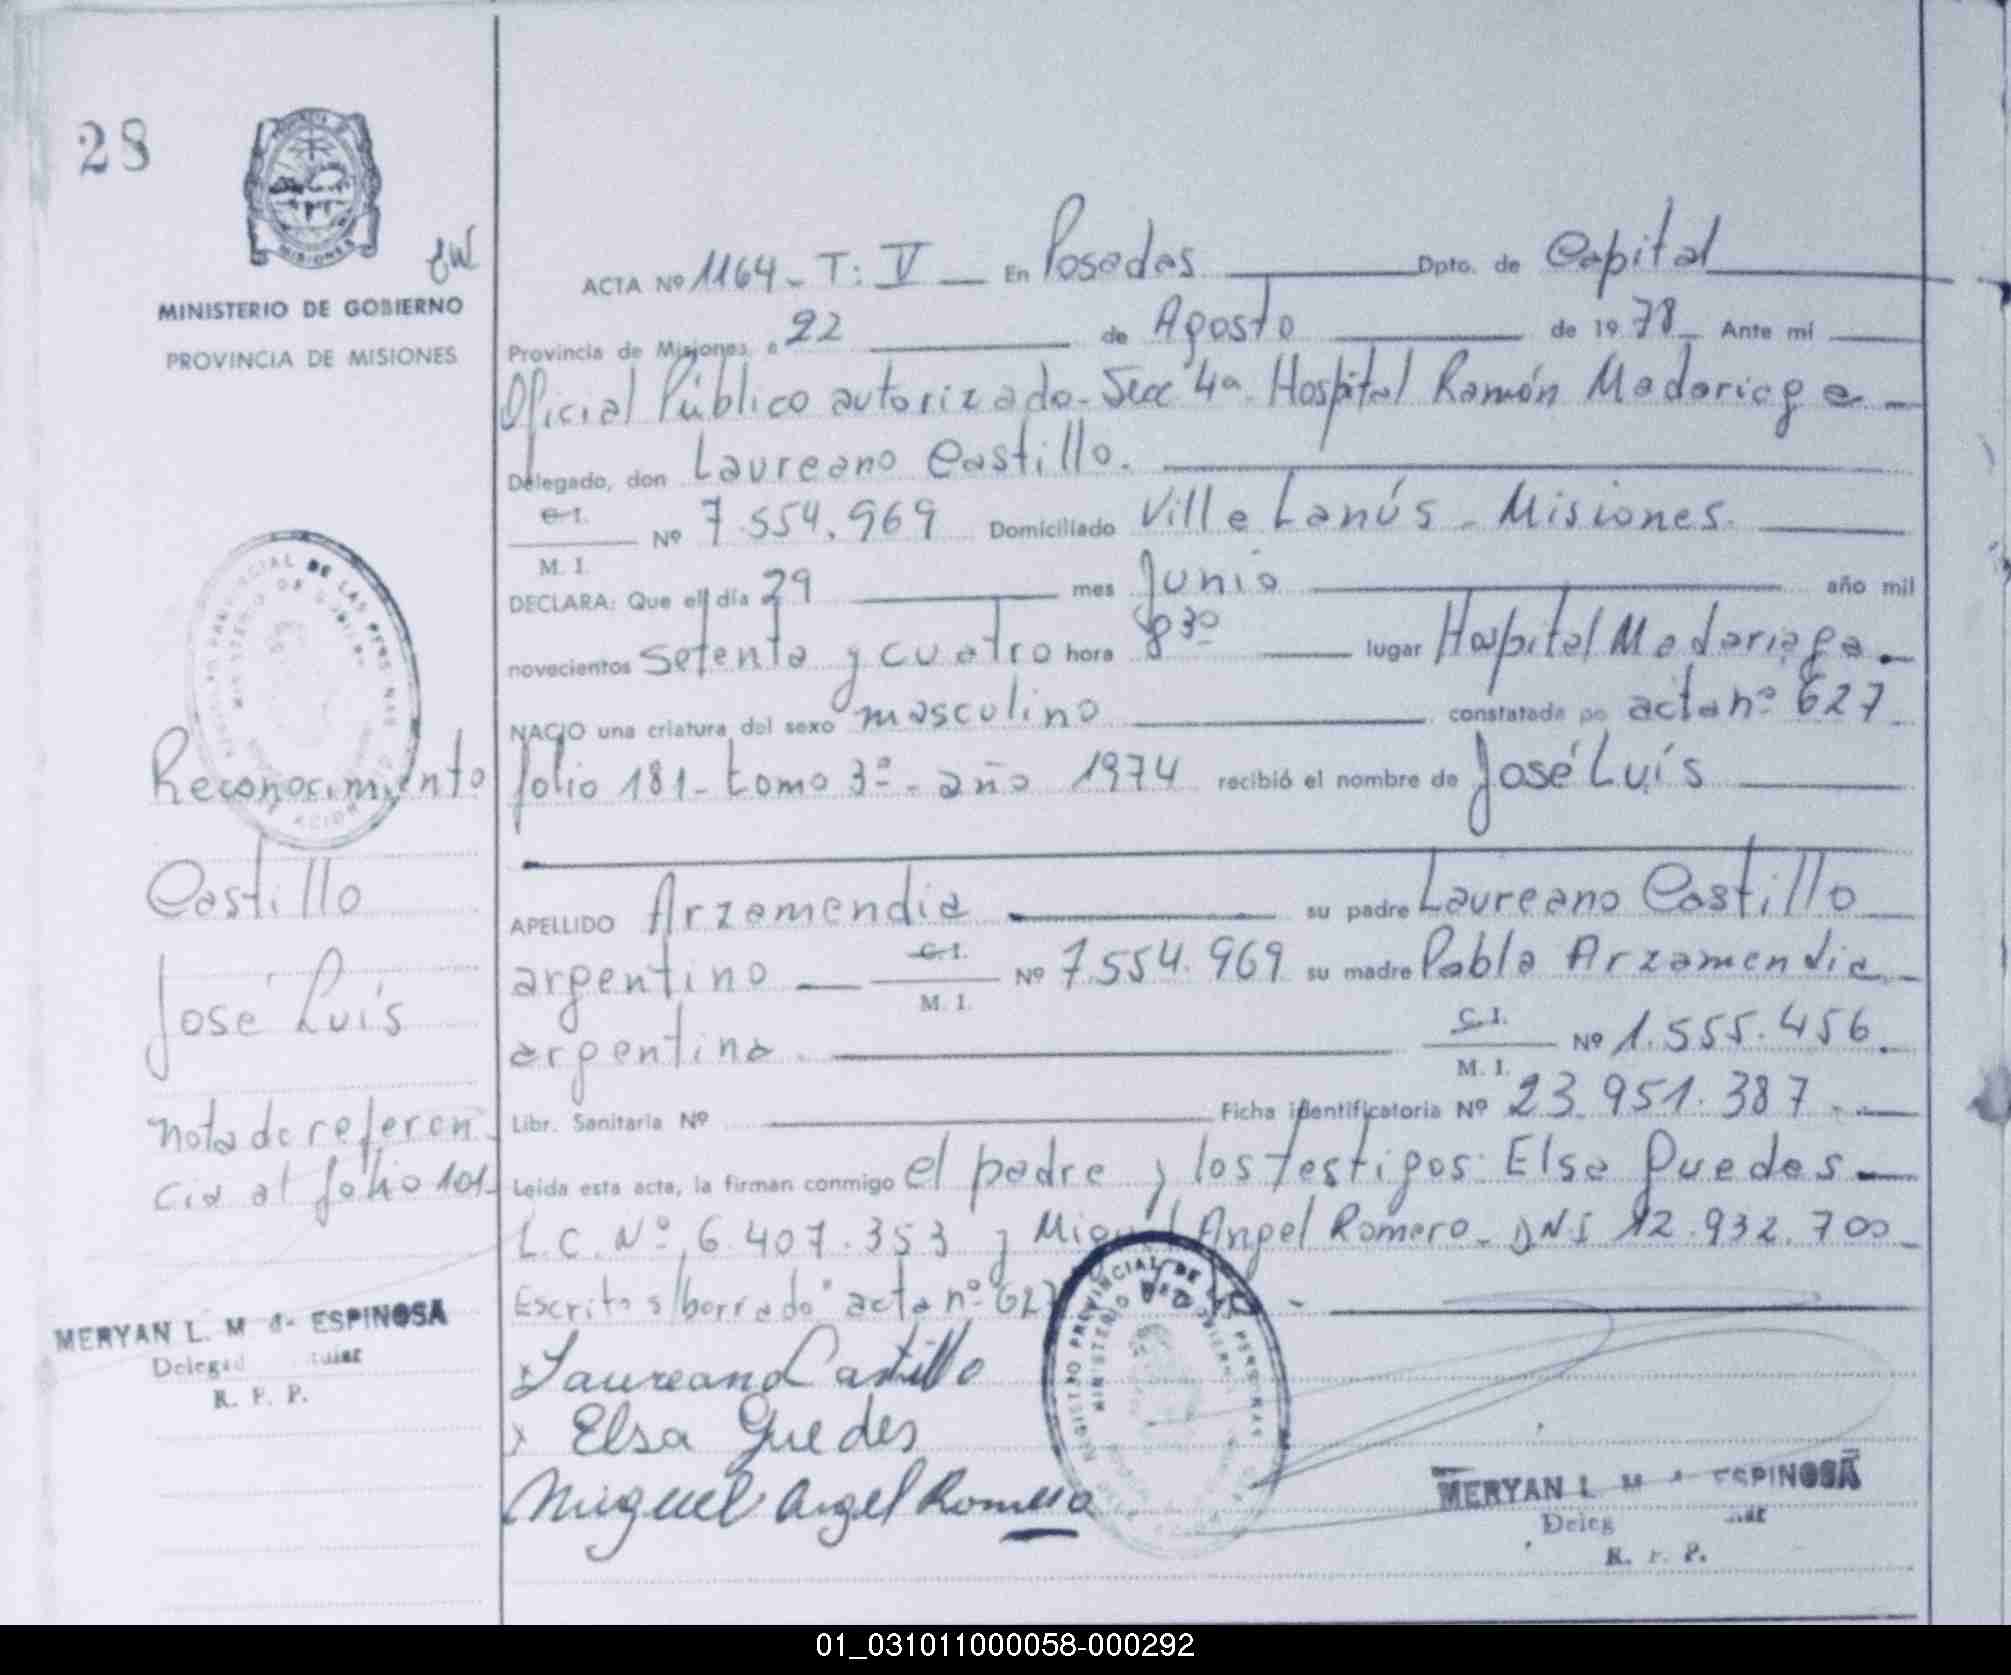 28
MISIONES
MINISTERIO DE GOBIERNO
PROVINCIA DE MISIONES
ACTA Nº 1164 - T: V — En Posadas Dpto. de Capital
Provincia de Misiones, a 22 de Agosto de 1978 Ante mí
Oficial Público autorizado - Secc 4ª. Hospital Ramón Madariaga -
Delegado, don Laureano Castillo.
C. I.
Nº 7.554.969 Domiciliado Villa Lanús - Misiones.
M. I.
DECLARA: Que el día 29 mes Junio año mil
novecientos setenta y cuatro hora 8 30 lugar Hospital Madariaga.
NACIO una criatura del sexo masculino constatada po acta nº 627
folio 181 - tomo 3º - año 1974 recibió el nombre de José Luís
APELLIDO Arzamendia su padre Laureano Castillo
argentino C. I. Nº 7.554.969 su madre Pabla Arzamendia
M. I.
argentina. C. I. Nº 1.555.456.
M. I.
Libr. Sanitaria Nº Ficha identificatoria Nº 23.951.387 -
Leída esta acta, la firman conmigo el padre y los testigos: Elsa Guedes
L.C. Nº 6.407.353 y Miguel Angel Romero - DNI 12.932.700 -
Escrito s/borrado "acta nº 627
Laureano Castillo
Elsa Guedes
Miguel Angel Romero
Reconocimiento
Castillo
José Luís
nota de referen-
cia al folio 101-
MERYAN L. M de ESPINOSA
R. P. P.
REGISTRO PROVINCIAL DE LAS PERSONAS
MINISTERIO DE GOBIERNO
MERYAN L. M de ESPINOSA
R. P. P.
01_031011000058-000292